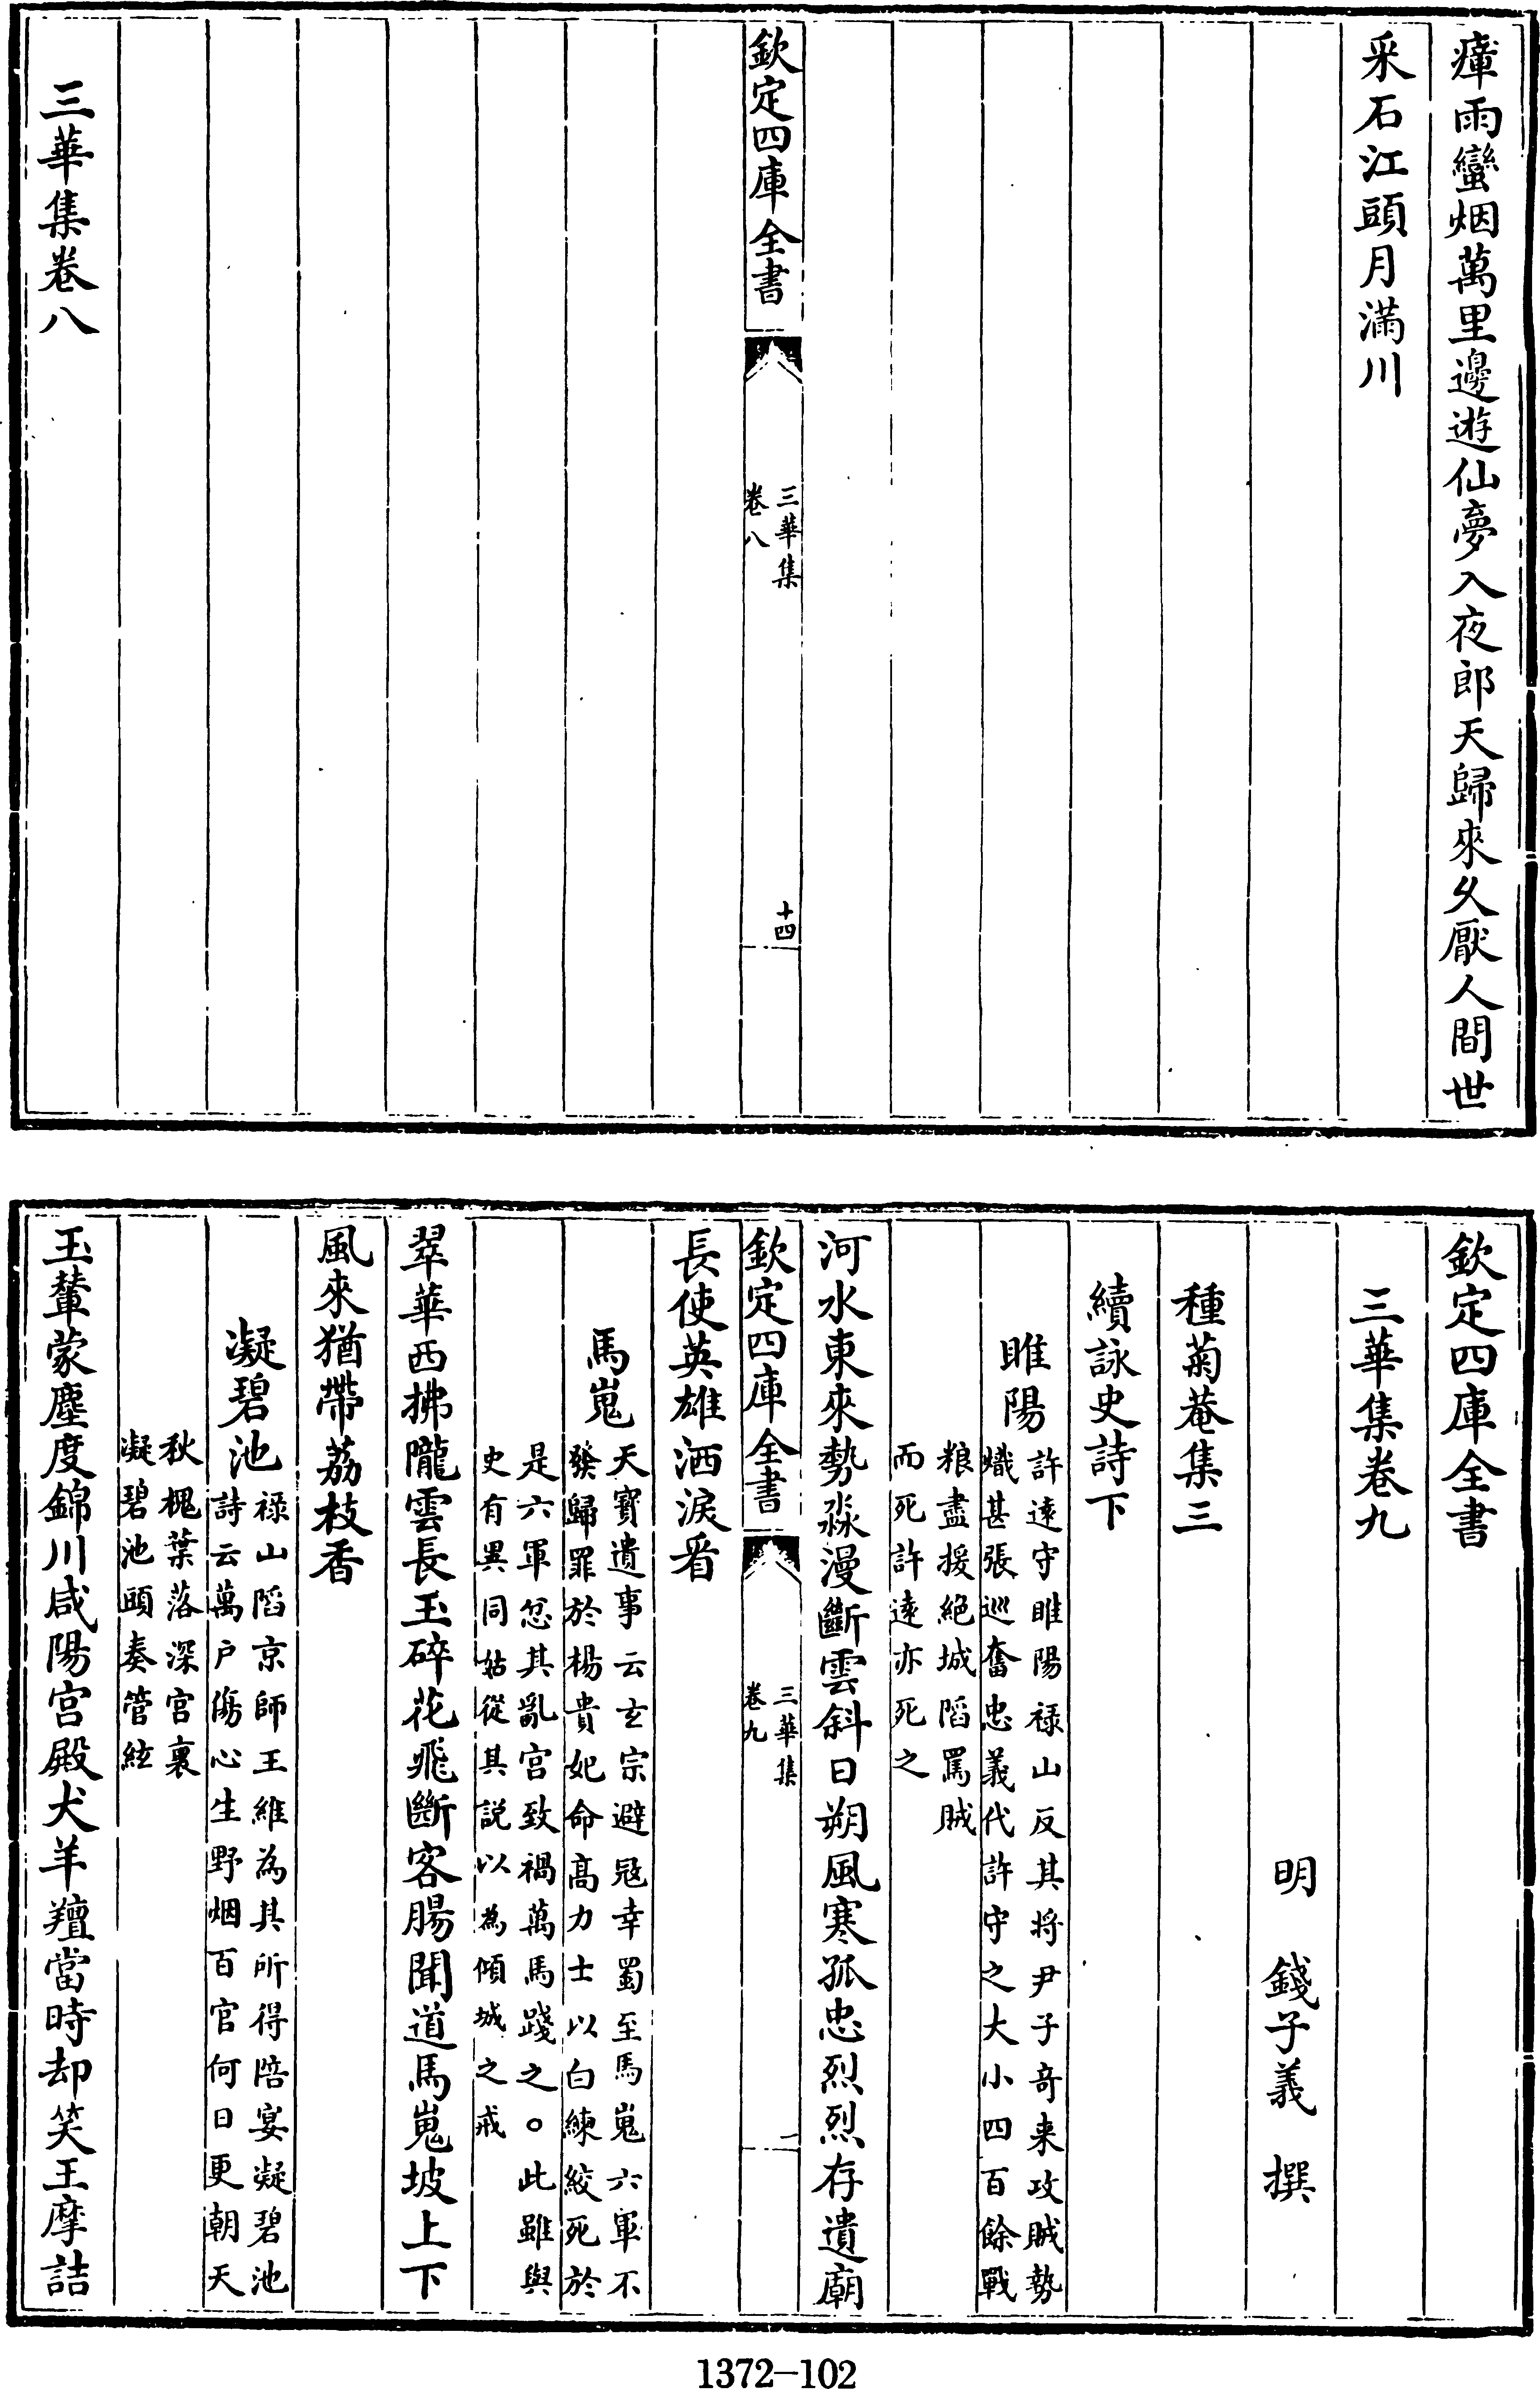 瘴雨蠻烟萬里邊遊仙夢入夜郎天歸來久厭人間世
采石江頭月滿川
欽定四庫全書
三華集
卷八
十四
三華集卷八
欽定四庫全書
三華集卷九
明 錢子義 撰
種菊菴集三
續詠史詩下
睢陽
許逺守睢陽禄山反其将尹子竒来攻賊勢
熾甚張巡奮忠義代許守之大小四百餘戰
粮盡援絕城䧟罵賊
而死許逺亦死之
河水東來勢淼漫斷雲斜日朔風寒孤忠烈烈存遺廟
欽定四庫全書
三華集
卷九
一
長使英雄洒淚看
馬嵬
天寳遺事云玄宗避冦幸蜀至馬嵬六軍不
發歸罪於楊貴妃命髙力士以白練絞死於
是六軍忿其亂宫致禍萬馬踐之○此雖與
史有異同姑從其説以為傾城之戒
翠華西拂隴雲長玉碎花飛斷客腸聞道馬嵬坡上下
風來猶帶荔枝香
凝碧池
禄山䧟京師王維為其所得陪宴凝碧池
詩云萬户傷心生野烟百官何日更朝天
秋槐葉落深宫裏
凝碧池頭奏管絃
玉輦蒙塵度錦川咸陽宫殿犬羊羶當時却笑王摩詰
1372-102